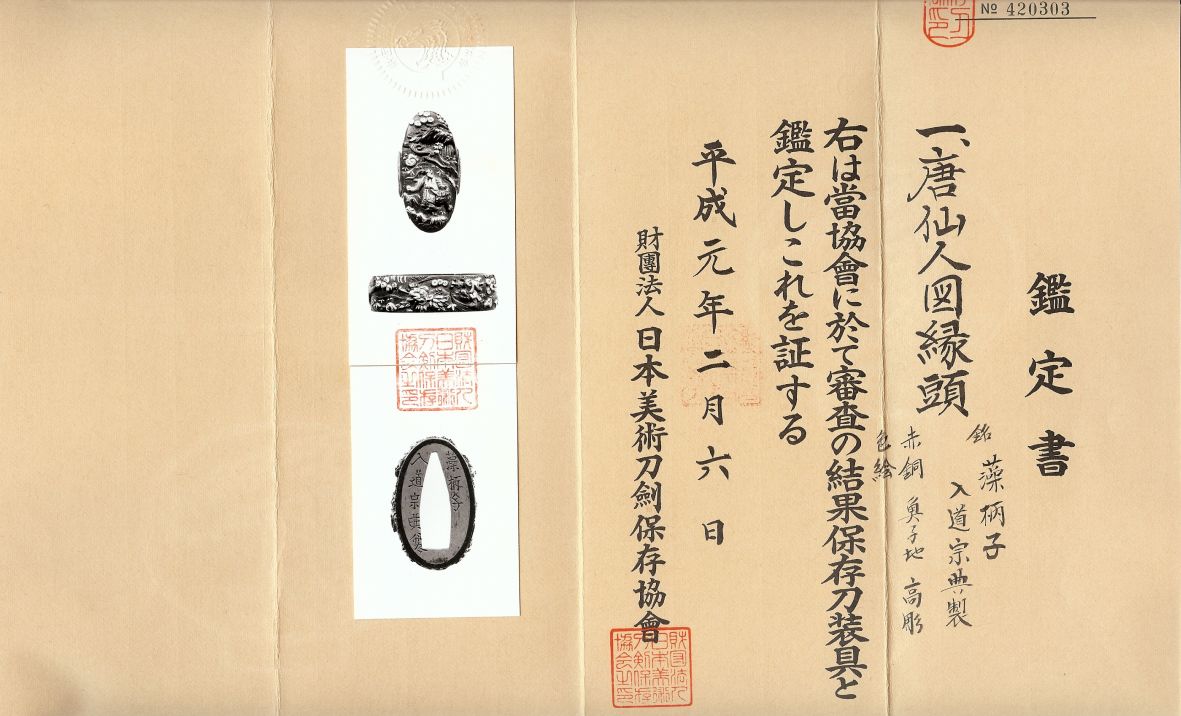 № 420303
鑑定書
一、唐仙人図縁頭
銘 藻柄子
入道宗典製
赤銅 魚子地 高彫
色絵
右は當協會に於て審査の結果保存刀装具と
鑑定しこれを証する
平成元年二月六日
財團法人日本美術刀劍保存協會
財団法人
日本美術
刀剣保存
協会之印
財団法人
日本美術
刀剣保存
協会之印
藻柄子
入道宗典製